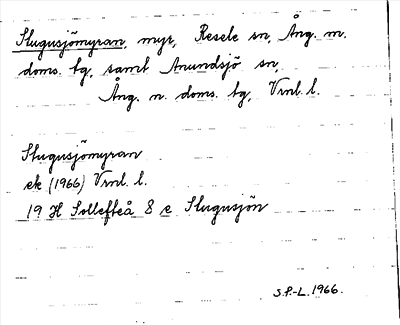 Slugusjömyran, myr, Resele sn, Ång. m.
doms. tg, samt Anundsjö sn,
Ång. n. doms. tg, Vrnl. l.
Slugusjömyran
ek (1966) Vrnl. l.
19 H Sollefteå 8 e Slugusjön
S.P.-L. 1966.